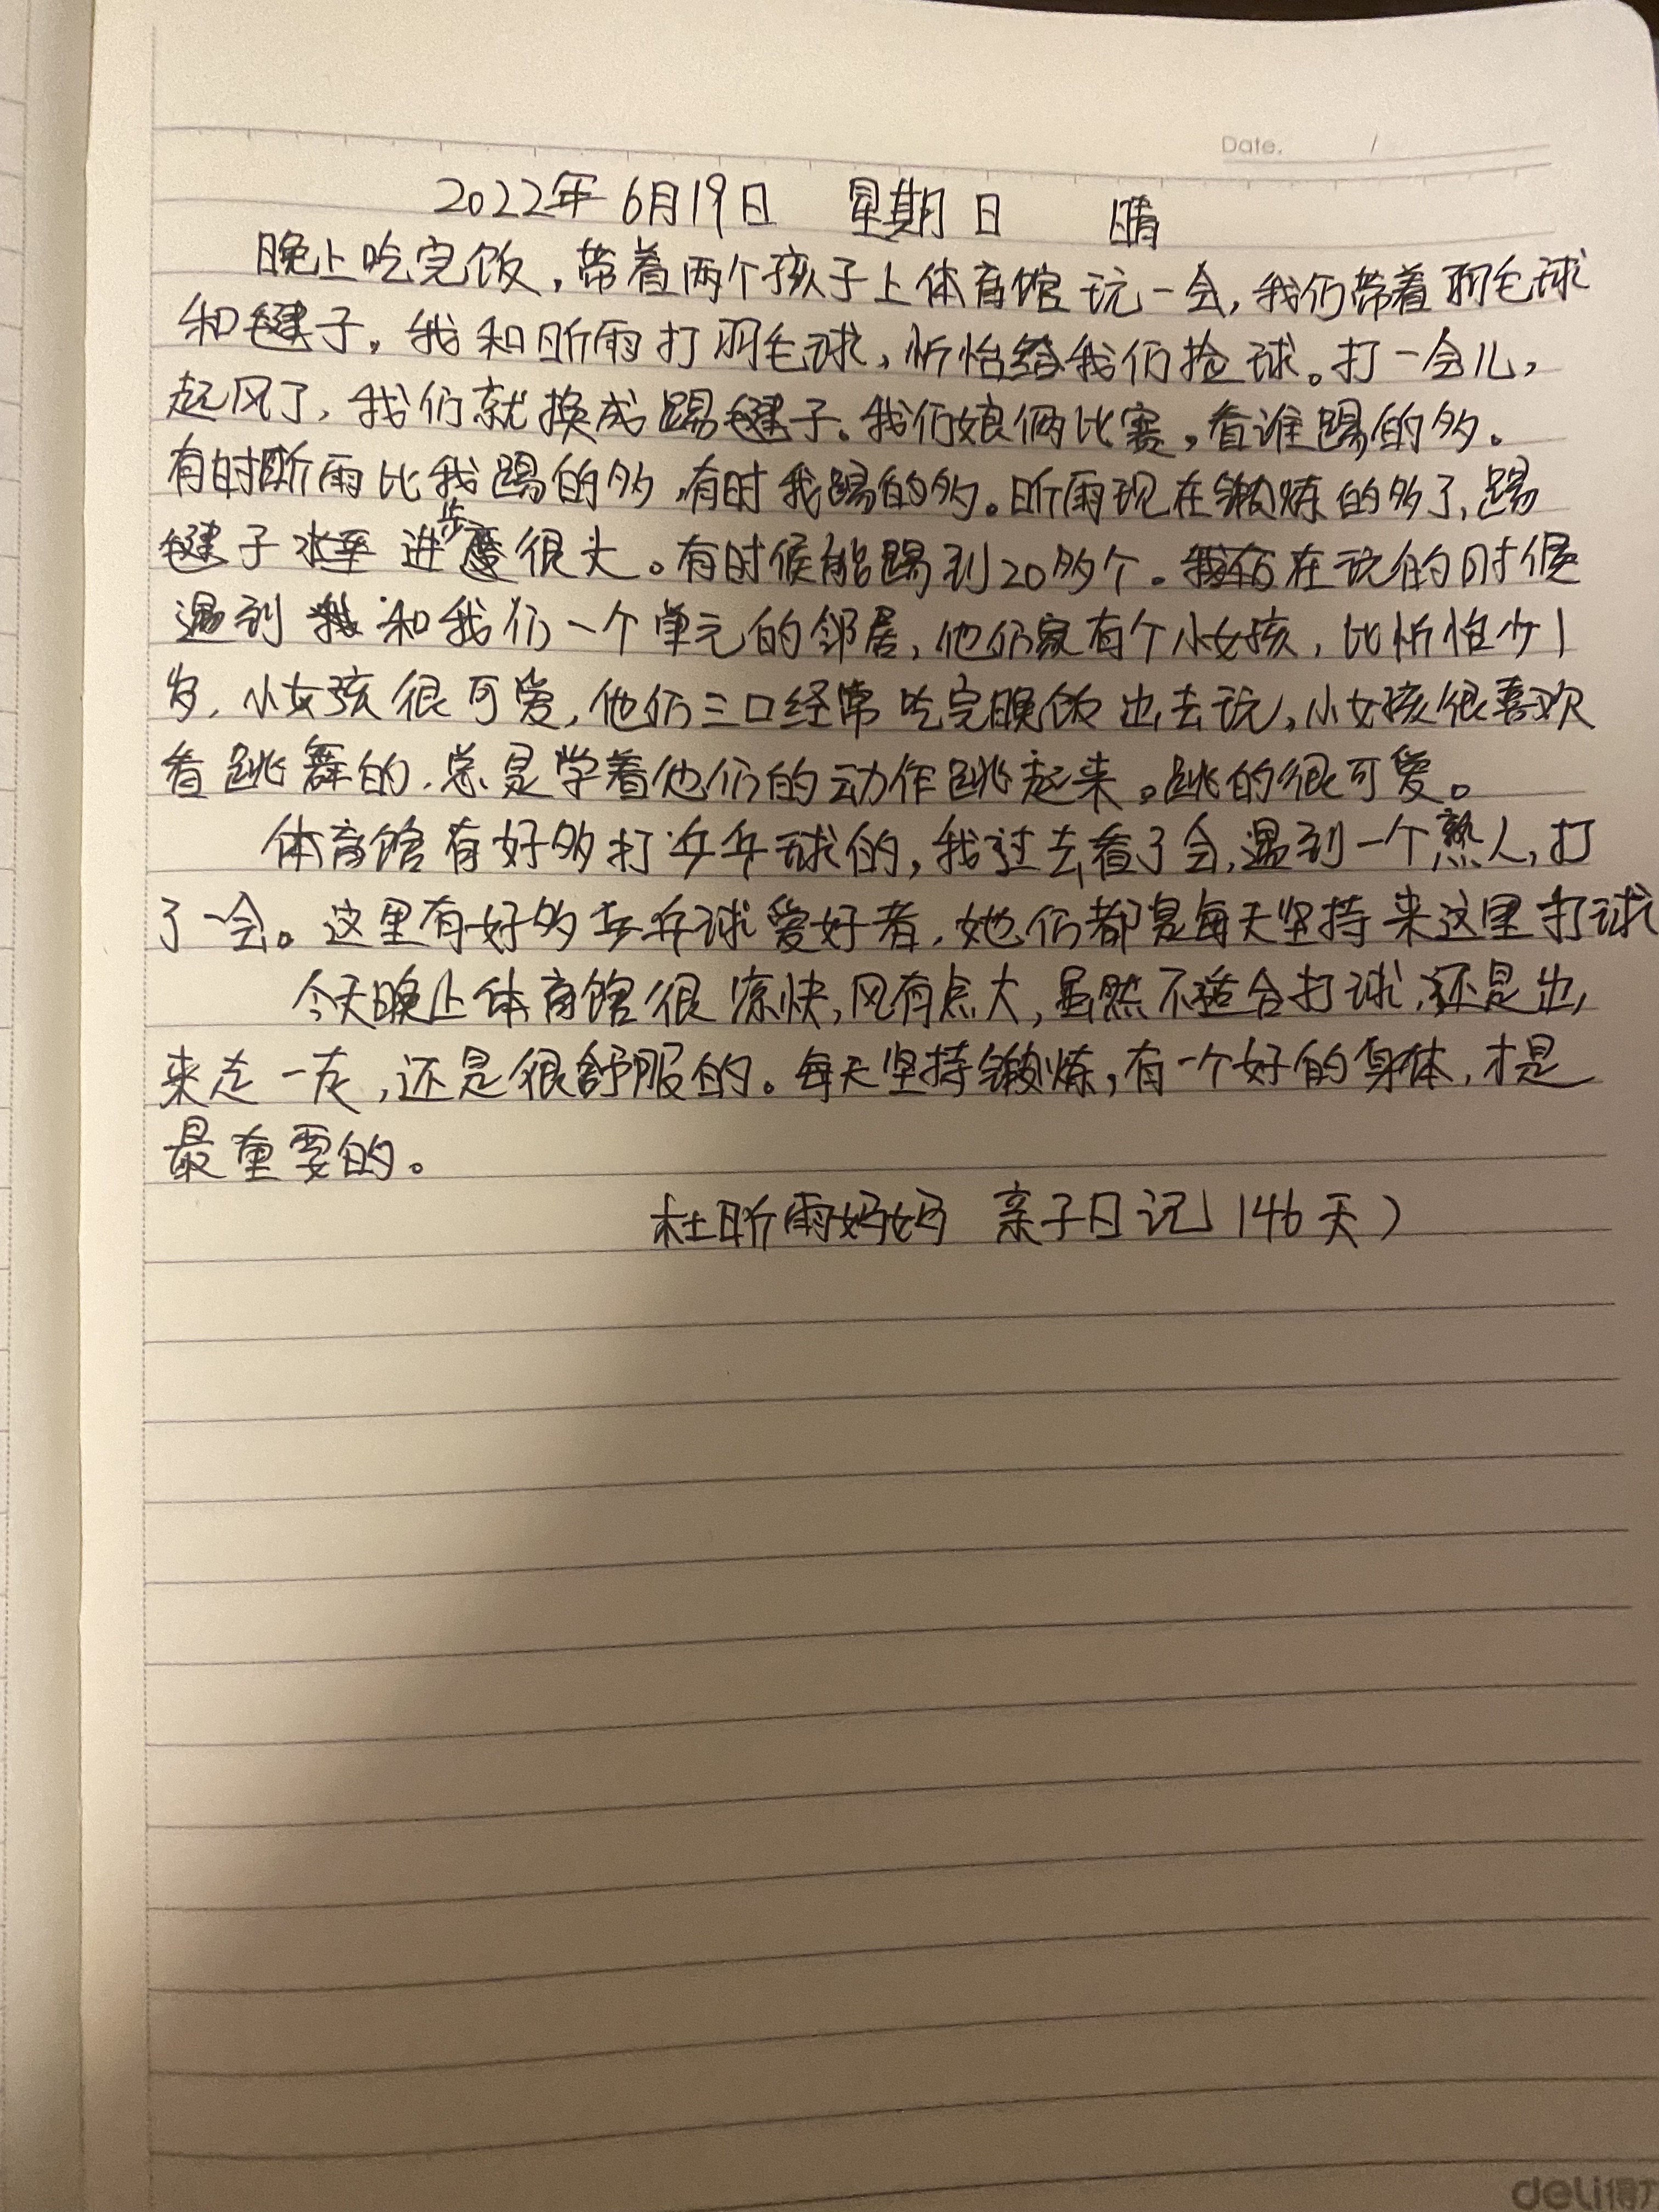 Date. /
2022年 6月19日 星期日 晴
晚上吃完饭,带着两个孩子上体育馆玩一会,我们带着羽毛球
和毽子。我和昕雨打羽毛球,忻怡给我们捡球。打一会儿,
起风了,我们就换成踢毽子。我们娘俩比赛,看谁踢的多。
有时昕雨比我踢的多,有时我踢的多。昕雨现在锻炼的多了,踢
毽子水平进步很大。有时候能踢到20多个。在玩的时候
遇到和我们一个单元的邻居,他们家有个小女孩,比忻怡少1
岁,小女孩很可爱,他们三口经常吃完晚饭出去玩,小女孩很喜欢
看跳舞的,总是学着他们的动作跳起来。跳的很可爱。
体育馆有好多打乒乓球的,我过去看了会,遇到一个熟人,打
了一会。这里有好多乒乓球爱好者,她们都是每天坚持来这里打球
今天晚上体育馆很凉快,风有点大,虽然不适合打球,还是出
来走一走,还是很舒服的。每天坚持锻炼,有一个好的身体,才是
最重要的。
杜昕雨妈妈 亲子日记(46天)
deli得力